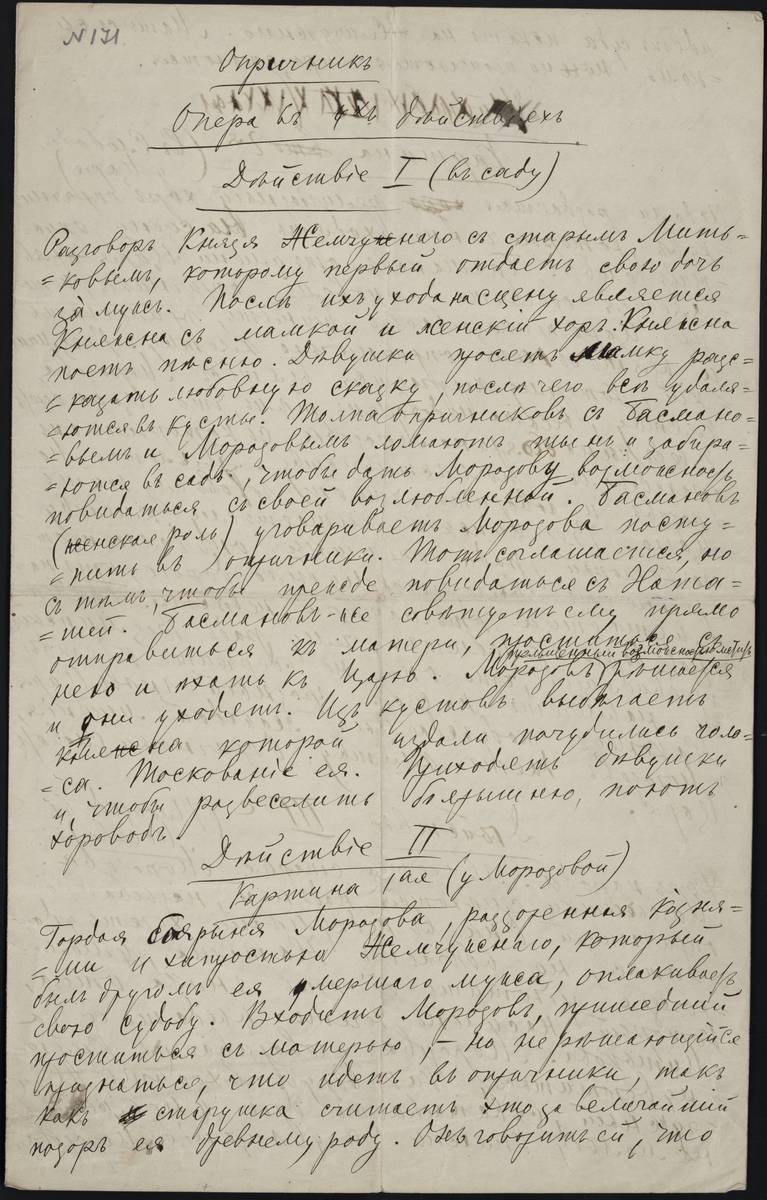 N 171
Опричникъ
Опера въ 4хъ дѣйствіяхъ
Дѣйствіе I (въ саду)
Разговоръ Князя Жемчужнаго съ старымъ Мить=
=ковымъ, которому первый отдаетъ свою дочь
за мужъ. Послѣ ихъ ухода на сцену является
Княжна съ мамкой и женскій хоръ. Княжна
поетъ пѣсню. Дѣвушки просятъ мамку разс=
=казать любовную сказку, послѣ чего всѣ удаля=
=ются въ кусты. Толпа опричниковъ съ Басмано=
=вымъ и Морозовымъ ломаютъ тынъ и забира=
=ются въ садъ, чтобы дать Морозову возможность
повидаться съ своей возлюбленной. Басмановъ
(женская роль) уговариваетъ Морозова посту=
=пить въ опричники. Тотъ соглашается, но
съ тѣмъ, чтобы прежде повидаться съ Ната=
=шей. Басмановъ-же совѣтуетъ ему прямо
отправиться къ матери, проститься съ
нею и ѣхать къ Царю. Морозовъ, рѣшается
и они уходятъ. Изъ кустовъ выбѣгаетъ
княжна которой издали почудились голо=
=са. Тоскованіе ея. Приходятъ дѣвушки
и, чтобы развеселить боярышню, поютъ
хороводъ.
Дѣйствіе II
Картина 1ая (у Морозовой)
Гордая боярыня Морозова, разоренная козня=
=ми и хитростью Жемчужнаго, который
былъ другомъ ея умершаго мужа, оплакиваетъ
свою судьбу. Входитъ Морозовъ, пришедший
проститься съ матерью, – но не рѣшающійся
признаться, что идетъ въ опричники, такъ
какъ старушка считаетъ это за величайший
позоръ ея древнему роду. Онъ говоритъ ей, что